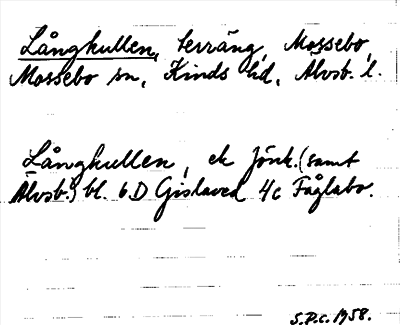 Långkullen, terräng, Mossebo,
Mossebo sn, Kinds hd, Älvsb. l.
Långkullen, ek Jönk. (samt
Älvsb.) bl. 6D Gislaved 4c Fåglabo.
S.P.C. 1958.